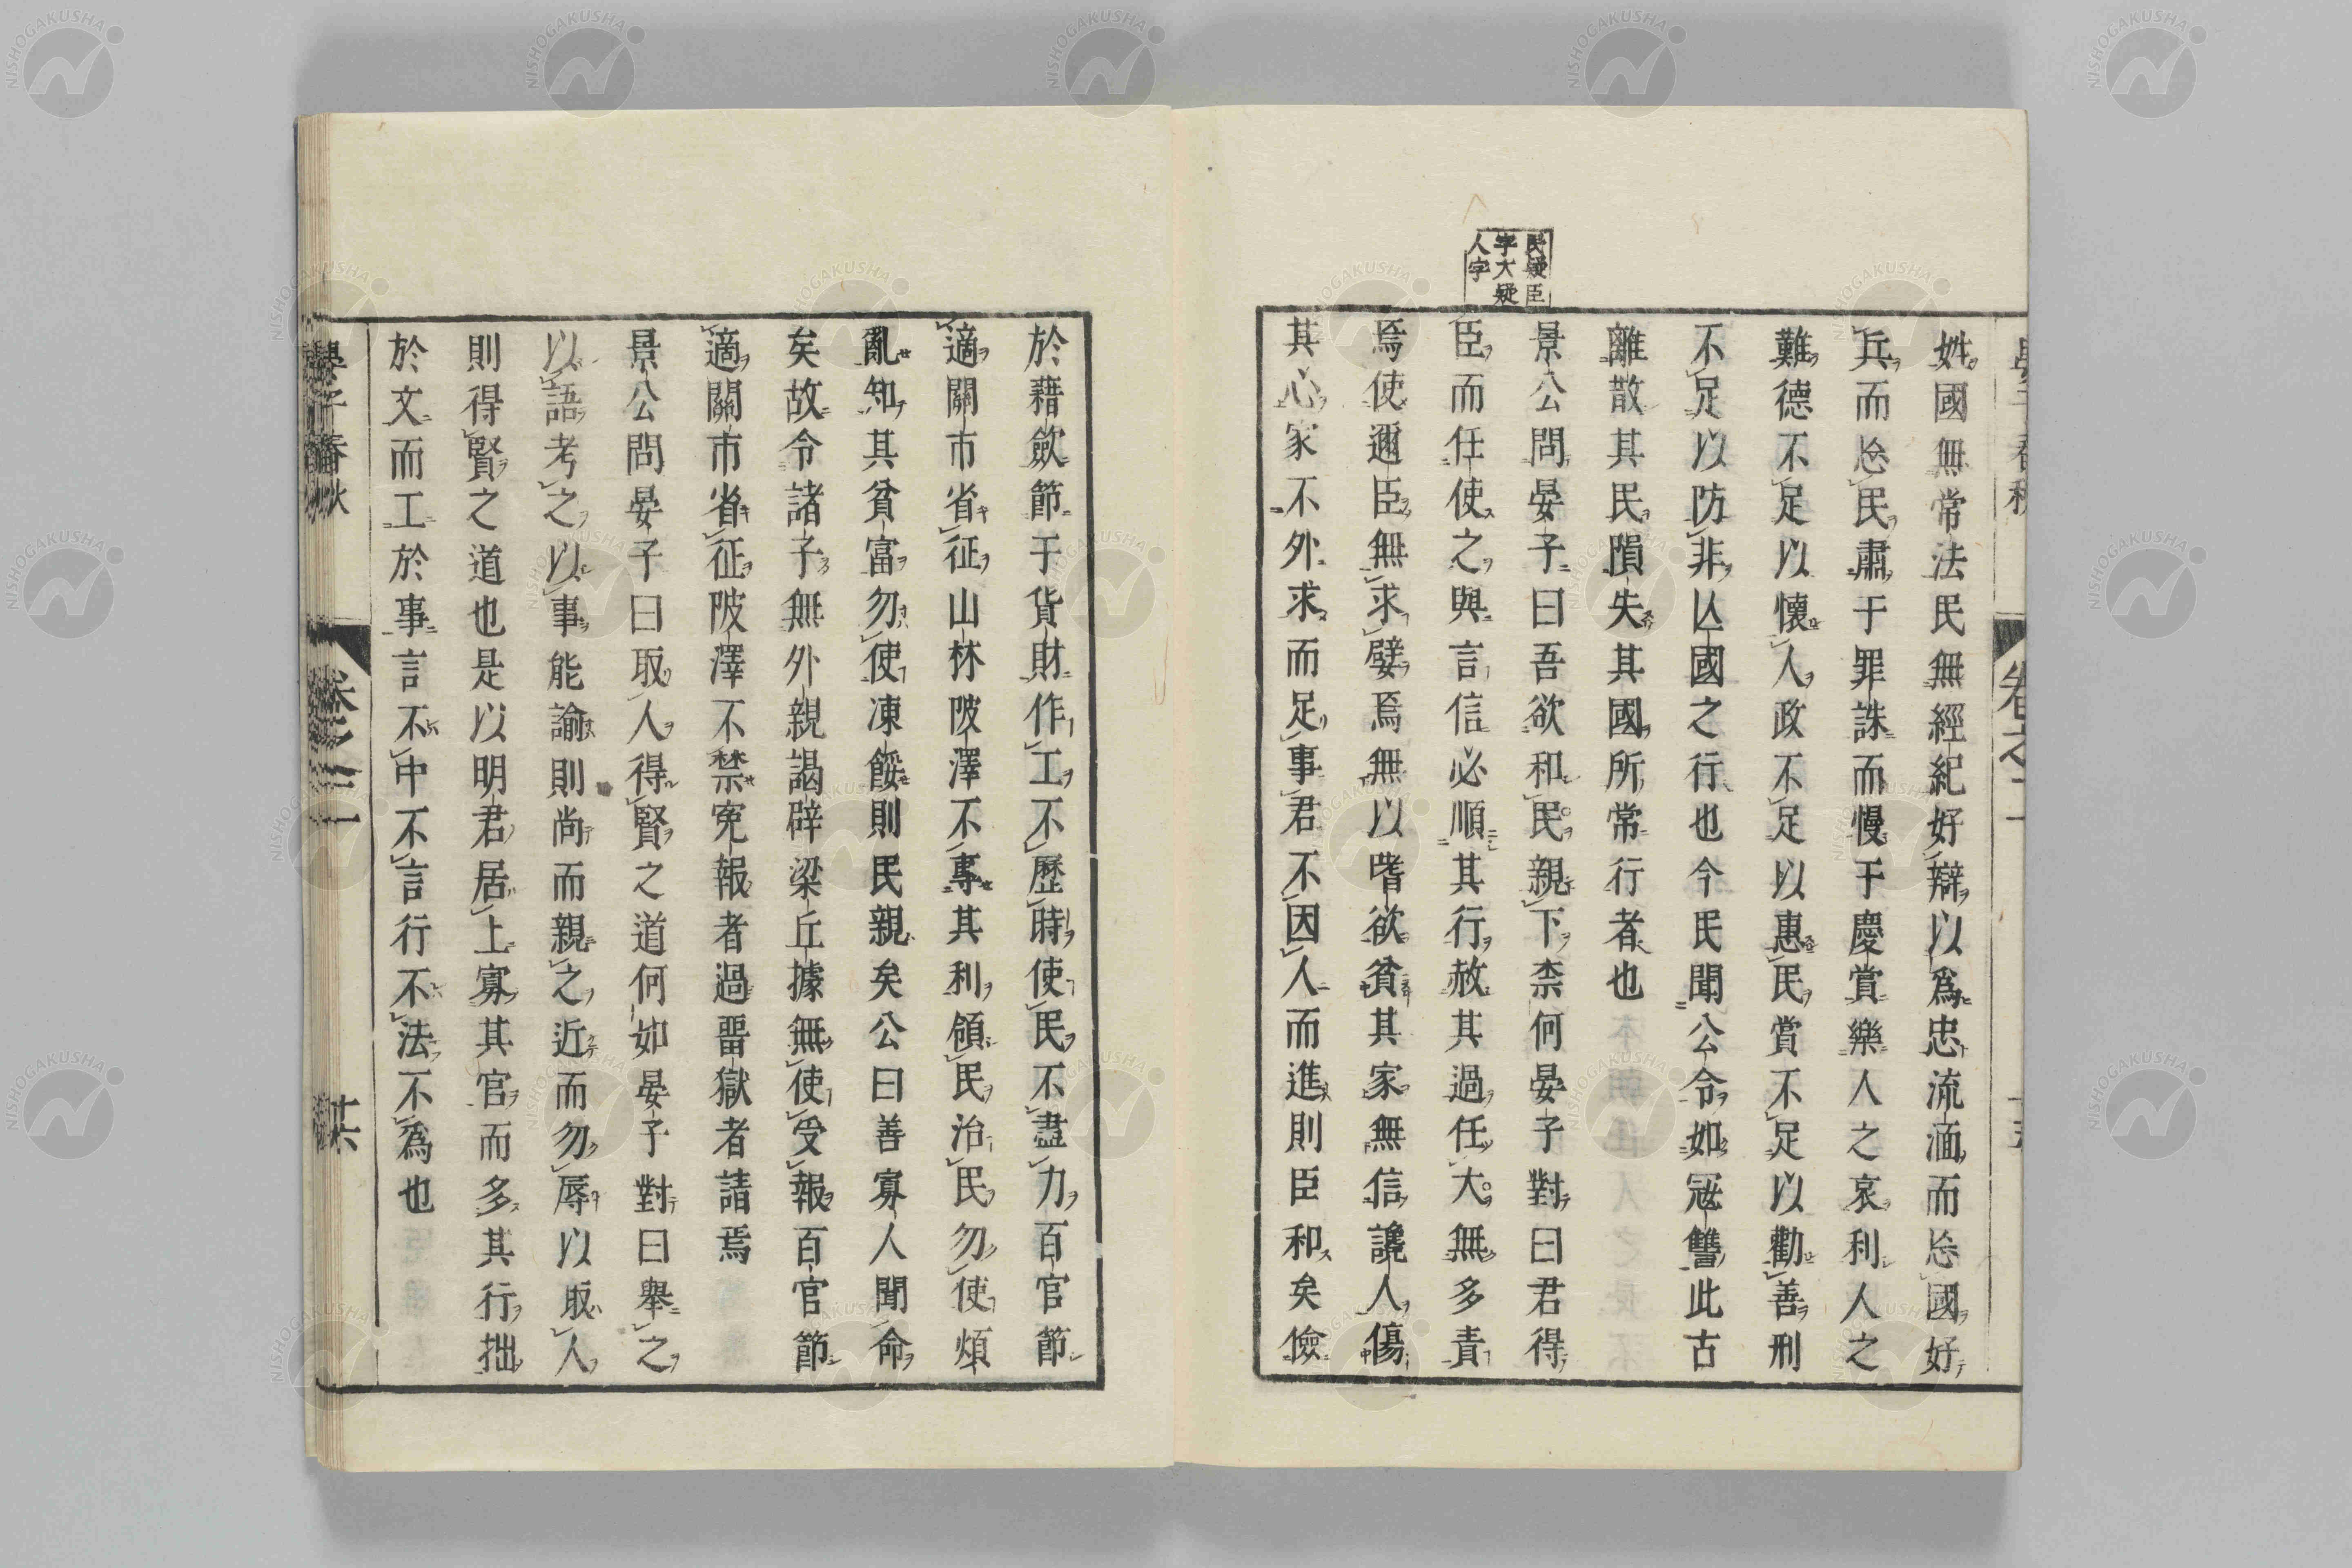 民疑臣
字大疑
人字
姓國無常法民無經紀好辯以爲忠流湎而忘國好
兵而忘民肅于罪誅而慢于慶賞樂人之哀利人之
難德不足以懷人政不足以惠民賞不足以勸善刑
不足以防非亾國之行也今民聞公令如寇讐此古
離散其民隕失其國所常行者也
景公問晏子曰吾欲和民親下柰何晏子對曰君得
臣而任使之與言信必順其行赦其過任大無多責
焉使邇臣無求嬖焉無以嗜欲貧其家無信讒人傷
其心家不外求而足事君不因人而進則臣和矣儉
於藉斂節于貨財作工不歷時使民不盡力百官節
適關市省征山林陂澤不專其利領民治民勿使煩
亂知其貧富勿使凍餒則民親矣公曰善寡人聞命
矣故令諸子無外親謁辟梁丘據無使受報百官節
適關市省征陂澤不禁寃報者過畱獄者請焉
景公問晏子曰取人得賢之道何如晏子對曰舉之
以語考之以事能諭則尚而親之近而勿辱以取人
則得賢之道也是以明君居上寡其官而多其行拙
於文而工於事言不中不言行不法不爲也
晏子春秋
卷之三
十六